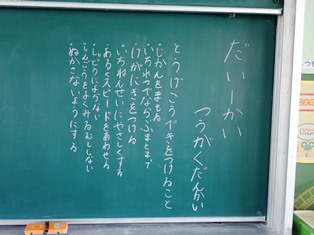 だい一かい
つうがくだんかい
とうげこうできをつけること
じかんをまもる
いちれつでならぶまとまる
けがにきをつける
いちねんせいにやさしくする
あるくスピードをあわせる
しゃどうにでない
しんごうをよくみる
ぬかさないようにする